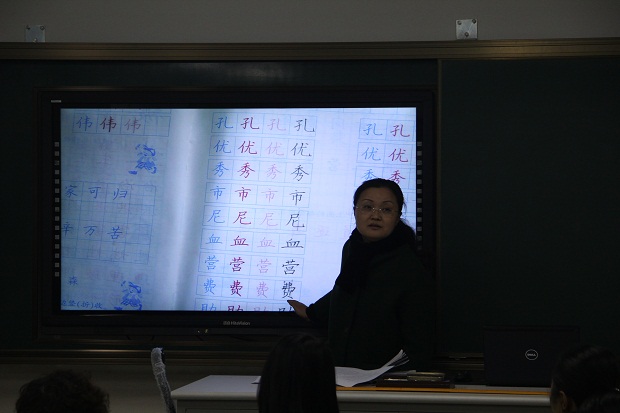 伟 伟 伟
家 可 归
辛 万 苦
孔 孔 孔 孔
优 优 优 优
秀 秀 秀 秀
市 市 市 市
尼 尼 尼 尼
血 血 血 血
营 营 营 营
费 费 费 费
助 助 助 助
孔 孔
优 优
秀 秀
DELL